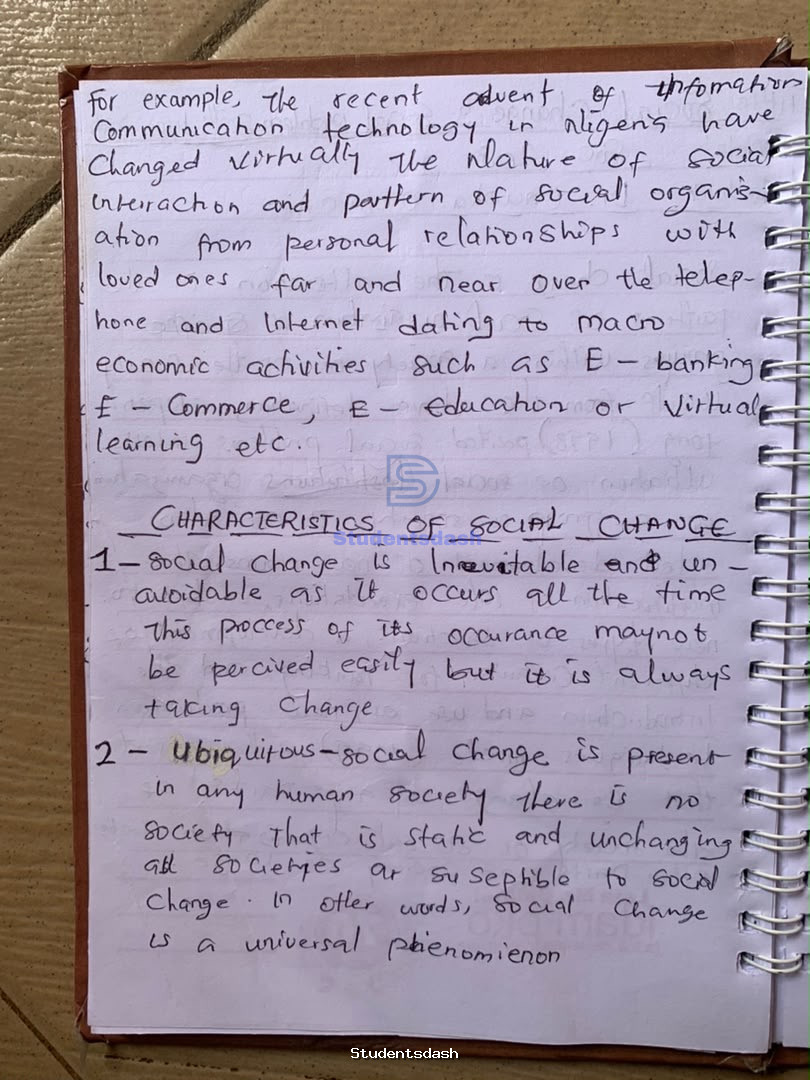 For example, the recent advent of Infomation
Communication technology in Nigeria have
Changed virtually the Nature of social
interaction and parttern of social organis-
ation from personal relationships with
loved ones far and near over the telep-
hone and Internet dating to macro
economic activities such as E - banking
E - Commerce, E - Education or Virtual
learning etc.
CHARACTERISTICS OF SOCIAL CHANGE
Studentsdash
1 - social change is Inevitable and un -
avoidable as it occurs all the time
this proccess of its occurance maynot
be percived easily but it is always
taking change
2 - Ubiquitous - social change is present
in any human society there is no
society that is static and unchanging
all societies ar suseptible to social
change. In other words, social change
is a universal phenomienon
Studentsdash